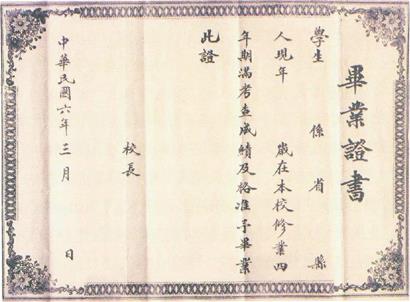 畢業證書
學生 係 省 縣
人現年 歲在本校修業四
年期滿考查成績及格准予畢業
此證
校長
中華民國六年三月 日